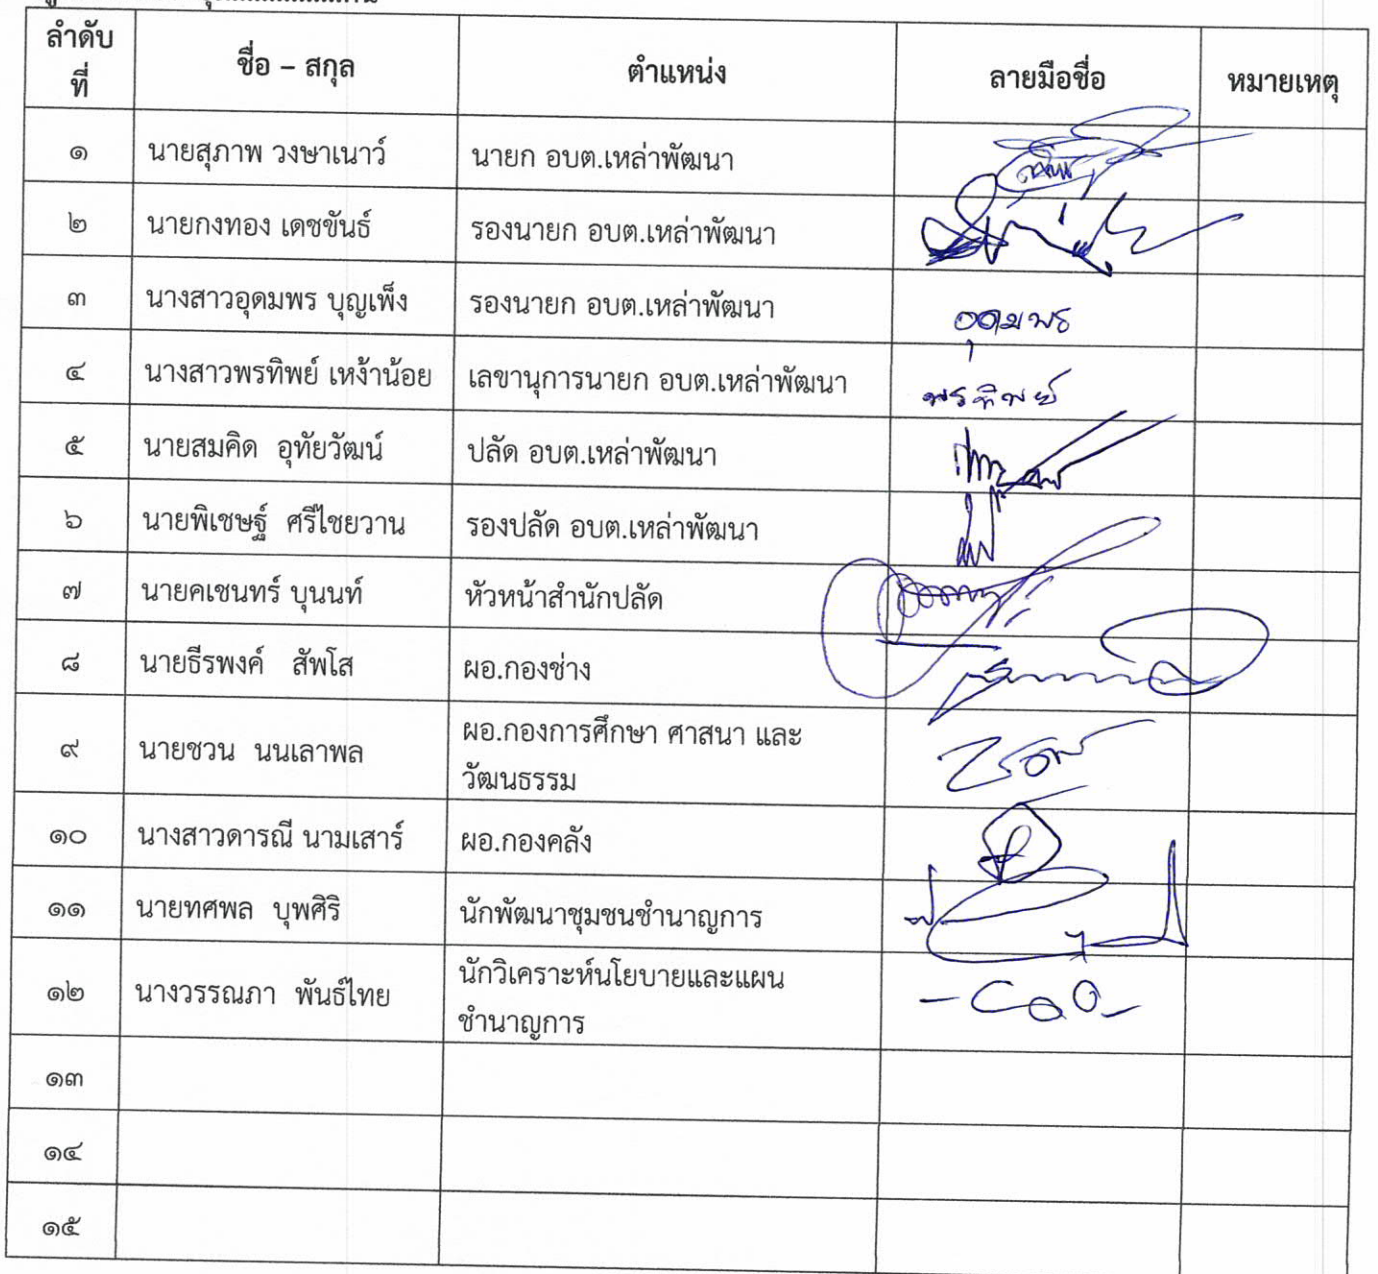 ลำดับ
ที่
ชื่อ – สกุล
ตำแหน่ง
ลายมือชื่อ
หมายเหตุ
๑ นายสุภาพ วงษาเนาว์ นายก อบต.เหล่าพัฒนา
๒ นายกงทอง เดชขันธ์ รองนายก อบต.เหล่าพัฒนา
๓ นางสาวอุดมพร บุญเพ็ง รองนายก อบต.เหล่าพัฒนา อุดมพร
๔ นางสาวพรทิพย์ เหง้าน้อย เลขานุการนายก อบต.เหล่าพัฒนา พรทิพย์
๕ นายสมคิด อุทัยวัฒน์ ปลัด อบต.เหล่าพัฒนา
๖ นายพิเชษฐ์ ศรีไชยวาน รองปลัด อบต.เหล่าพัฒนา
๗ นายคเชนทร์ บุนนท์ หัวหน้าสำนักปลัด
๘ นายธีรพงค์ สัพโส ผอ.กองช่าง
๙ นายชวน นนเลาพล ผอ.กองการศึกษา ศาสนา และ
วัฒนธรรม
๑๐ นางสาวดารณี นามเสาร์ ผอ.กองคลัง
๑๑ นายทศพล บุพศิริ นักพัฒนาชุมชนชำนาญการ
๑๒ นางวรรณภา พันธ์ไทย นักวิเคราะห์นโยบายและแผน
ชำนาญการ
๑๓
๑๔
๑๕